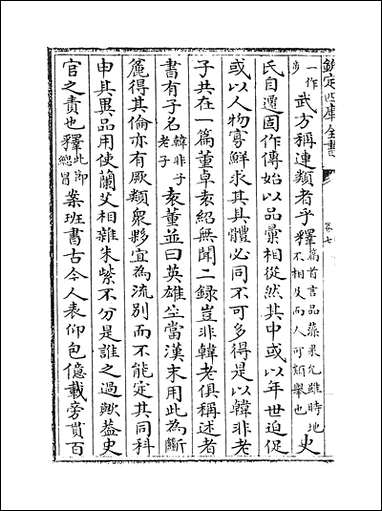 欽定四庫全書 卷七
一作步武方稱連類者乎釋篇首言品藻最允雖時地不相及而人可類舉也史
氏自遷固作傳始以品彙相從然其中或以年世迫促
或以人物寡鮮求其具體必同不可多得是以韓非老
子共在一篇董卓袁紹無聞二録豈非韓老俱稱述者
書有子名韓非子老子袁董並曰英雄生當漢末用此為斷
麤得其倫亦有厥類衆夥宜為流别而不能定其同科
申其異品用使蘭艾相雜朱紫不分是誰之過歟蓋史
官之責也釋此節總冒案班書古今人表仰包億載旁貫百